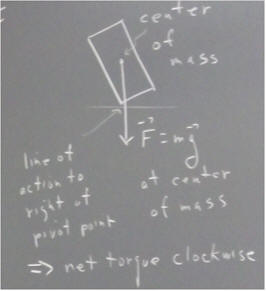 center
of
mass
F⃗ = mg⃗
at center
of mass
line of
action to
right of
pivot point
⇒ net torque clockwise